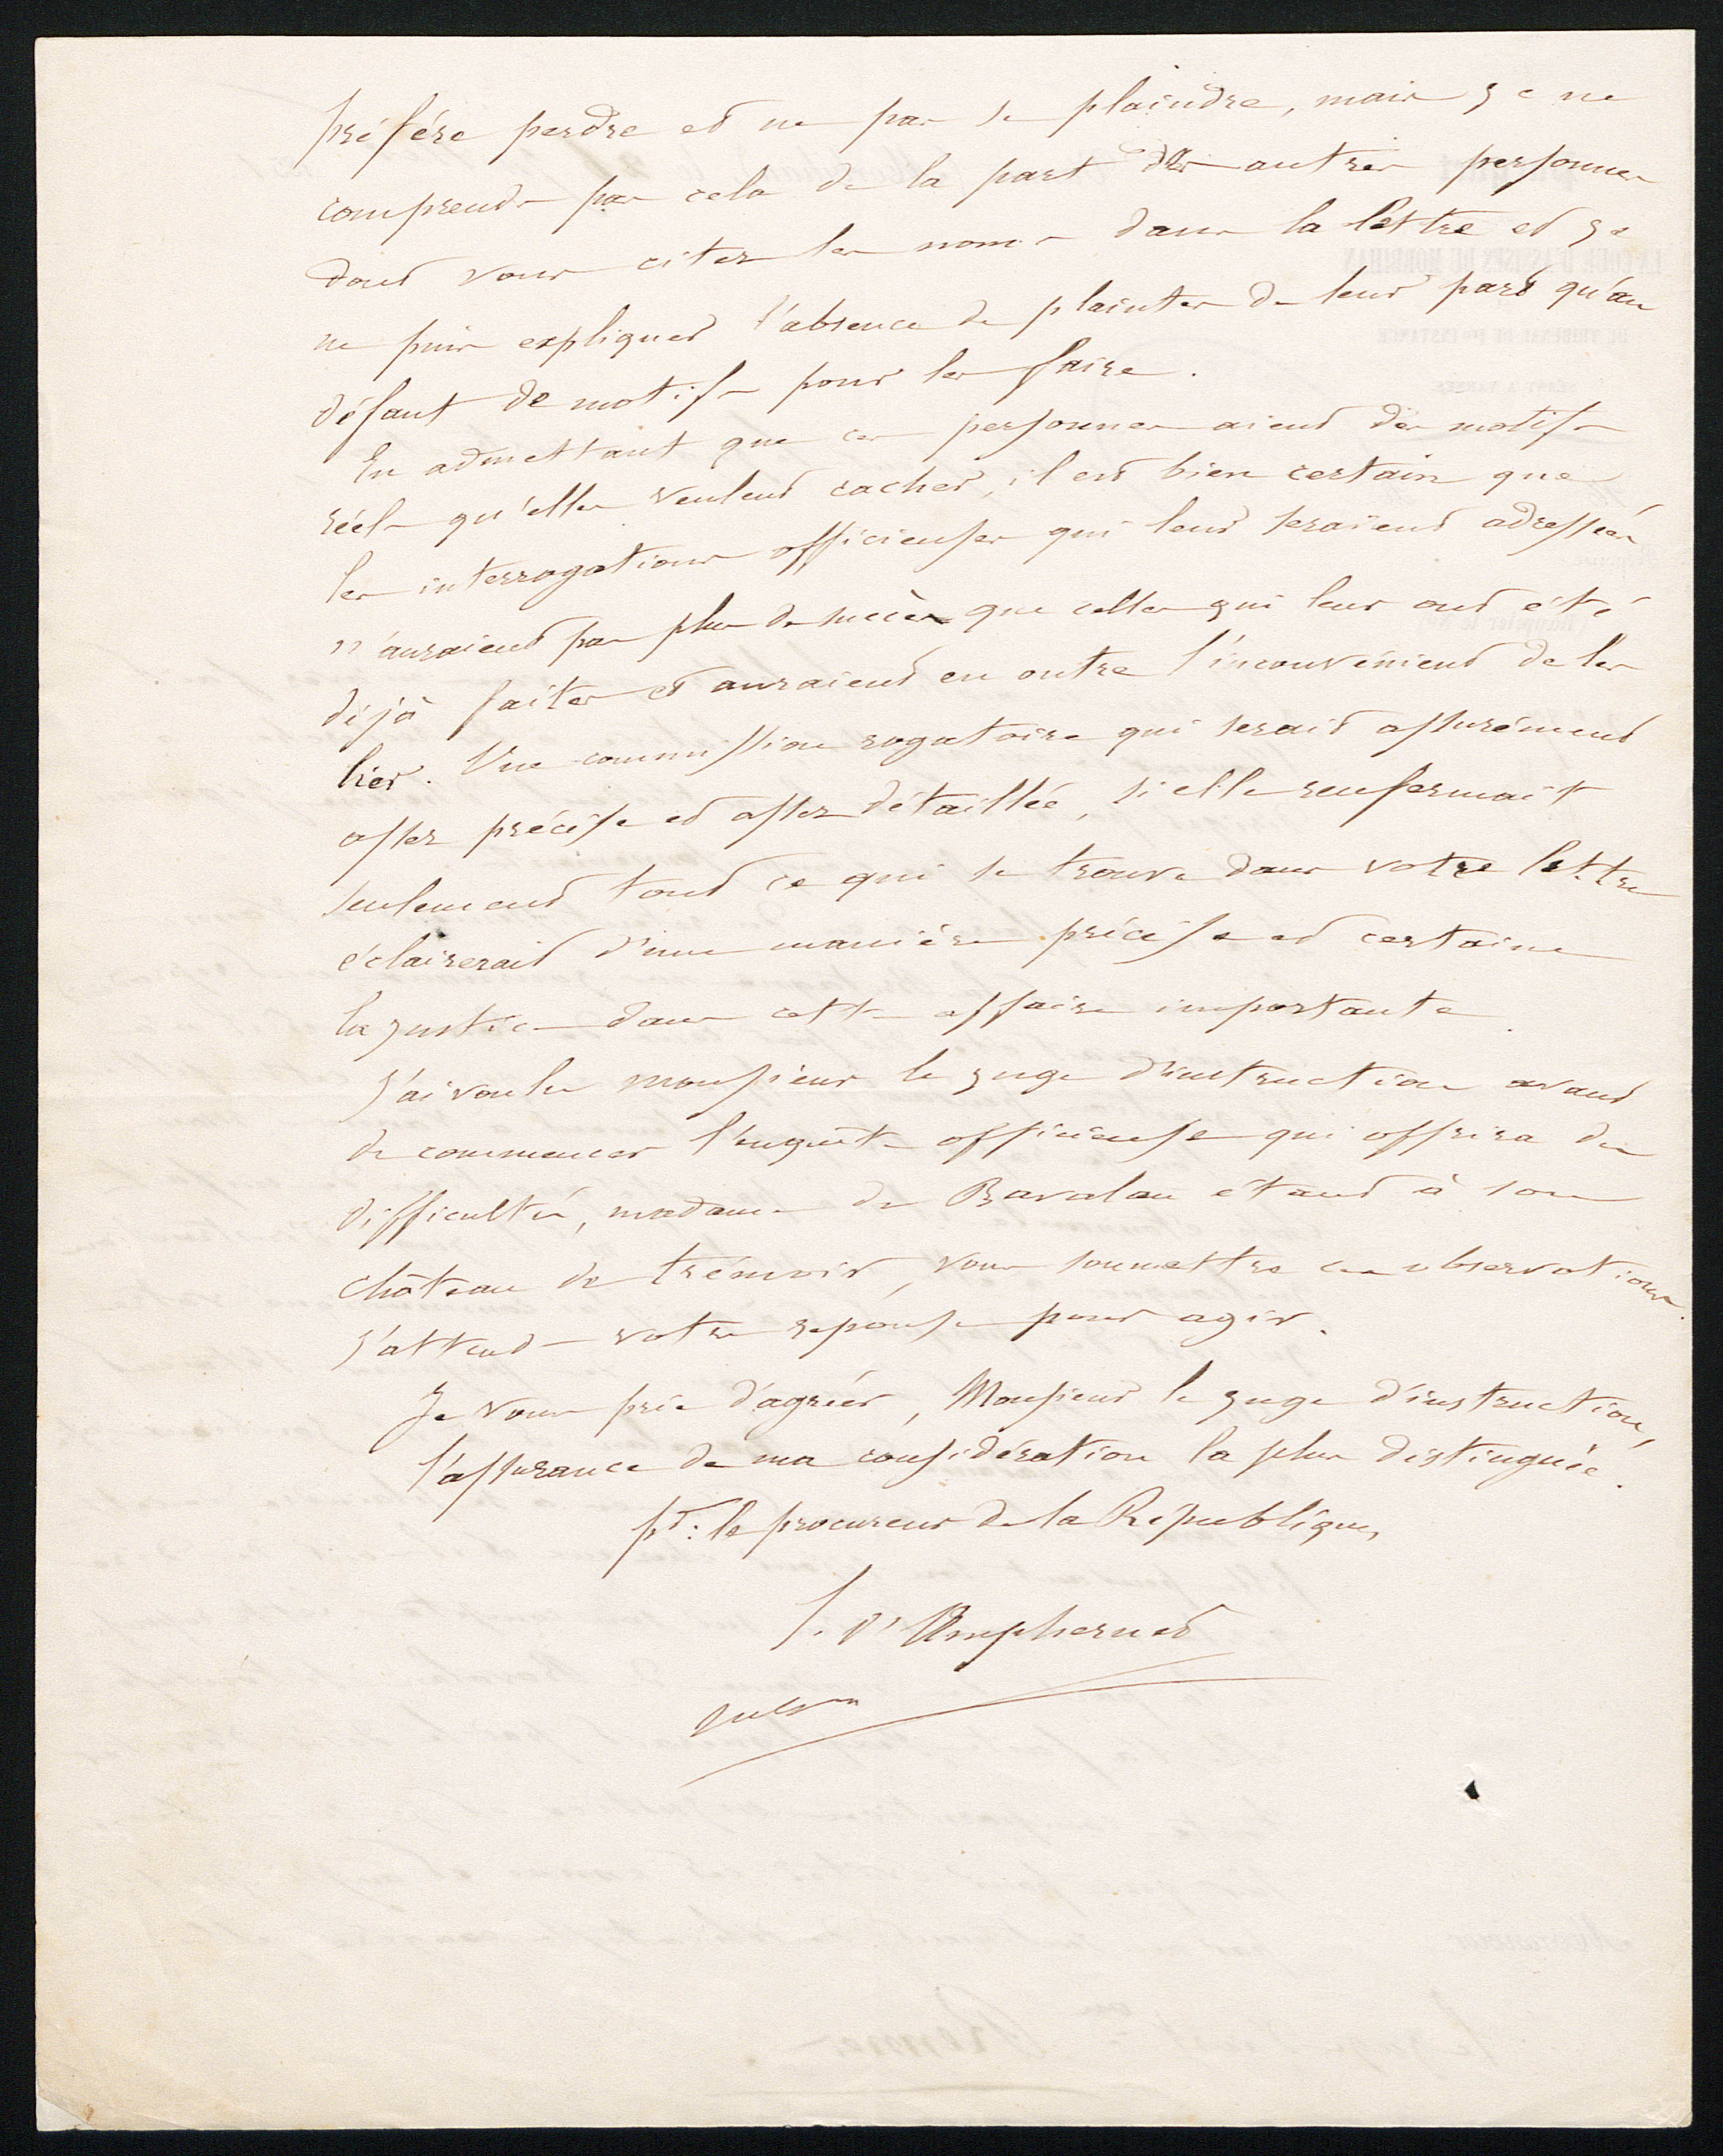 préfére perdre et ne pas se plaindre, mais je ne
comprends pas cela de la part des autres personnes
dont vous citez les noms dans la lettre et je
ne puis expliquer l'absence de plaintes de leur part qu'au
défaut de motifs pour les faire.
En admettant que ces personnes aient des motifs
réels qu'elles veulent cacher, il est bien certain que
les interrogations officieuses qui leur seraient adressées
n'auraient pas plus de succès que celles qui leur ont été
déjà faites et auraient en outre l'inconvénient de les
lier. Une commission rogatoire qui serait assurément
assez précise et assez détaillée, si elle renfermait
seulement tout ce qui se trouve dans votre lettre
éclairerait d'une manière précise et certaine
la justice dans cette affaire importante.
J'ai voulu monsieur le juge d'instruction avant
de commencer l'enquête officieuse qui offrira des
difficultés, madame de Bavalan étant à son
château de trémoir, vous soumettre ces observations.
j'attends votre réponse pour agir.
Je vous prie d'agréer, Monsieur le juge d'instruction,
l'assurance de ma considération la plus distinguée.
pr: le procureur de la République,
J. d'Amphernet
subst